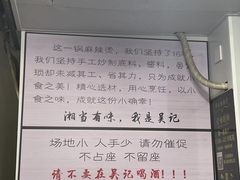 这一锅麻辣烫，我们坚持了16
我们坚持手工炒制底料，塑料，
琐却未减其工，省其力，只为成就小
食之美！精心选材，用心烹饪，以小
食之味，成就这份小确幸！
湘当有味，我是吴记
场地小 人手少 请勿催促
不占座 不留座
请不要在吴记喝酒!!!